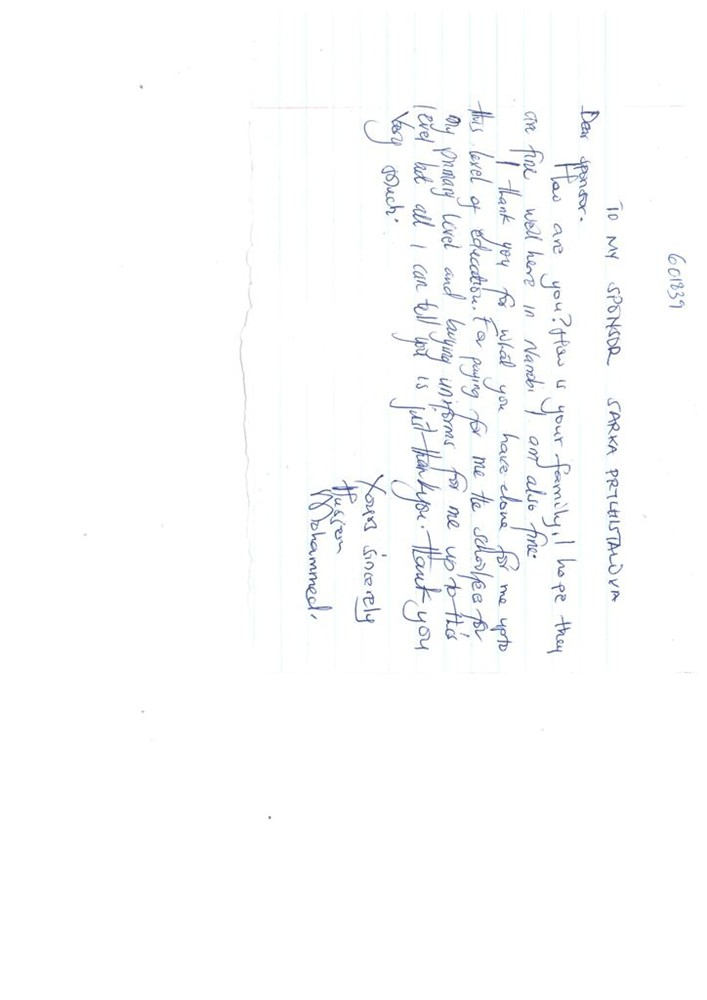 601839
TO MY SPONSOR SARKA PRTCHISTALOVA
Dear sponsor.
How are you? How is your family, I hope they
are fine well here in Nairobi I am also fine.
I thank you for what you have done for me upto
this level of education. For paying for me the schoolfees for
my primary level and buying uniforms for me up to this
level but all I can tell you is just thankyou. Thank you
Very Much.
Yours sincerely
Hussien
Mohammed.